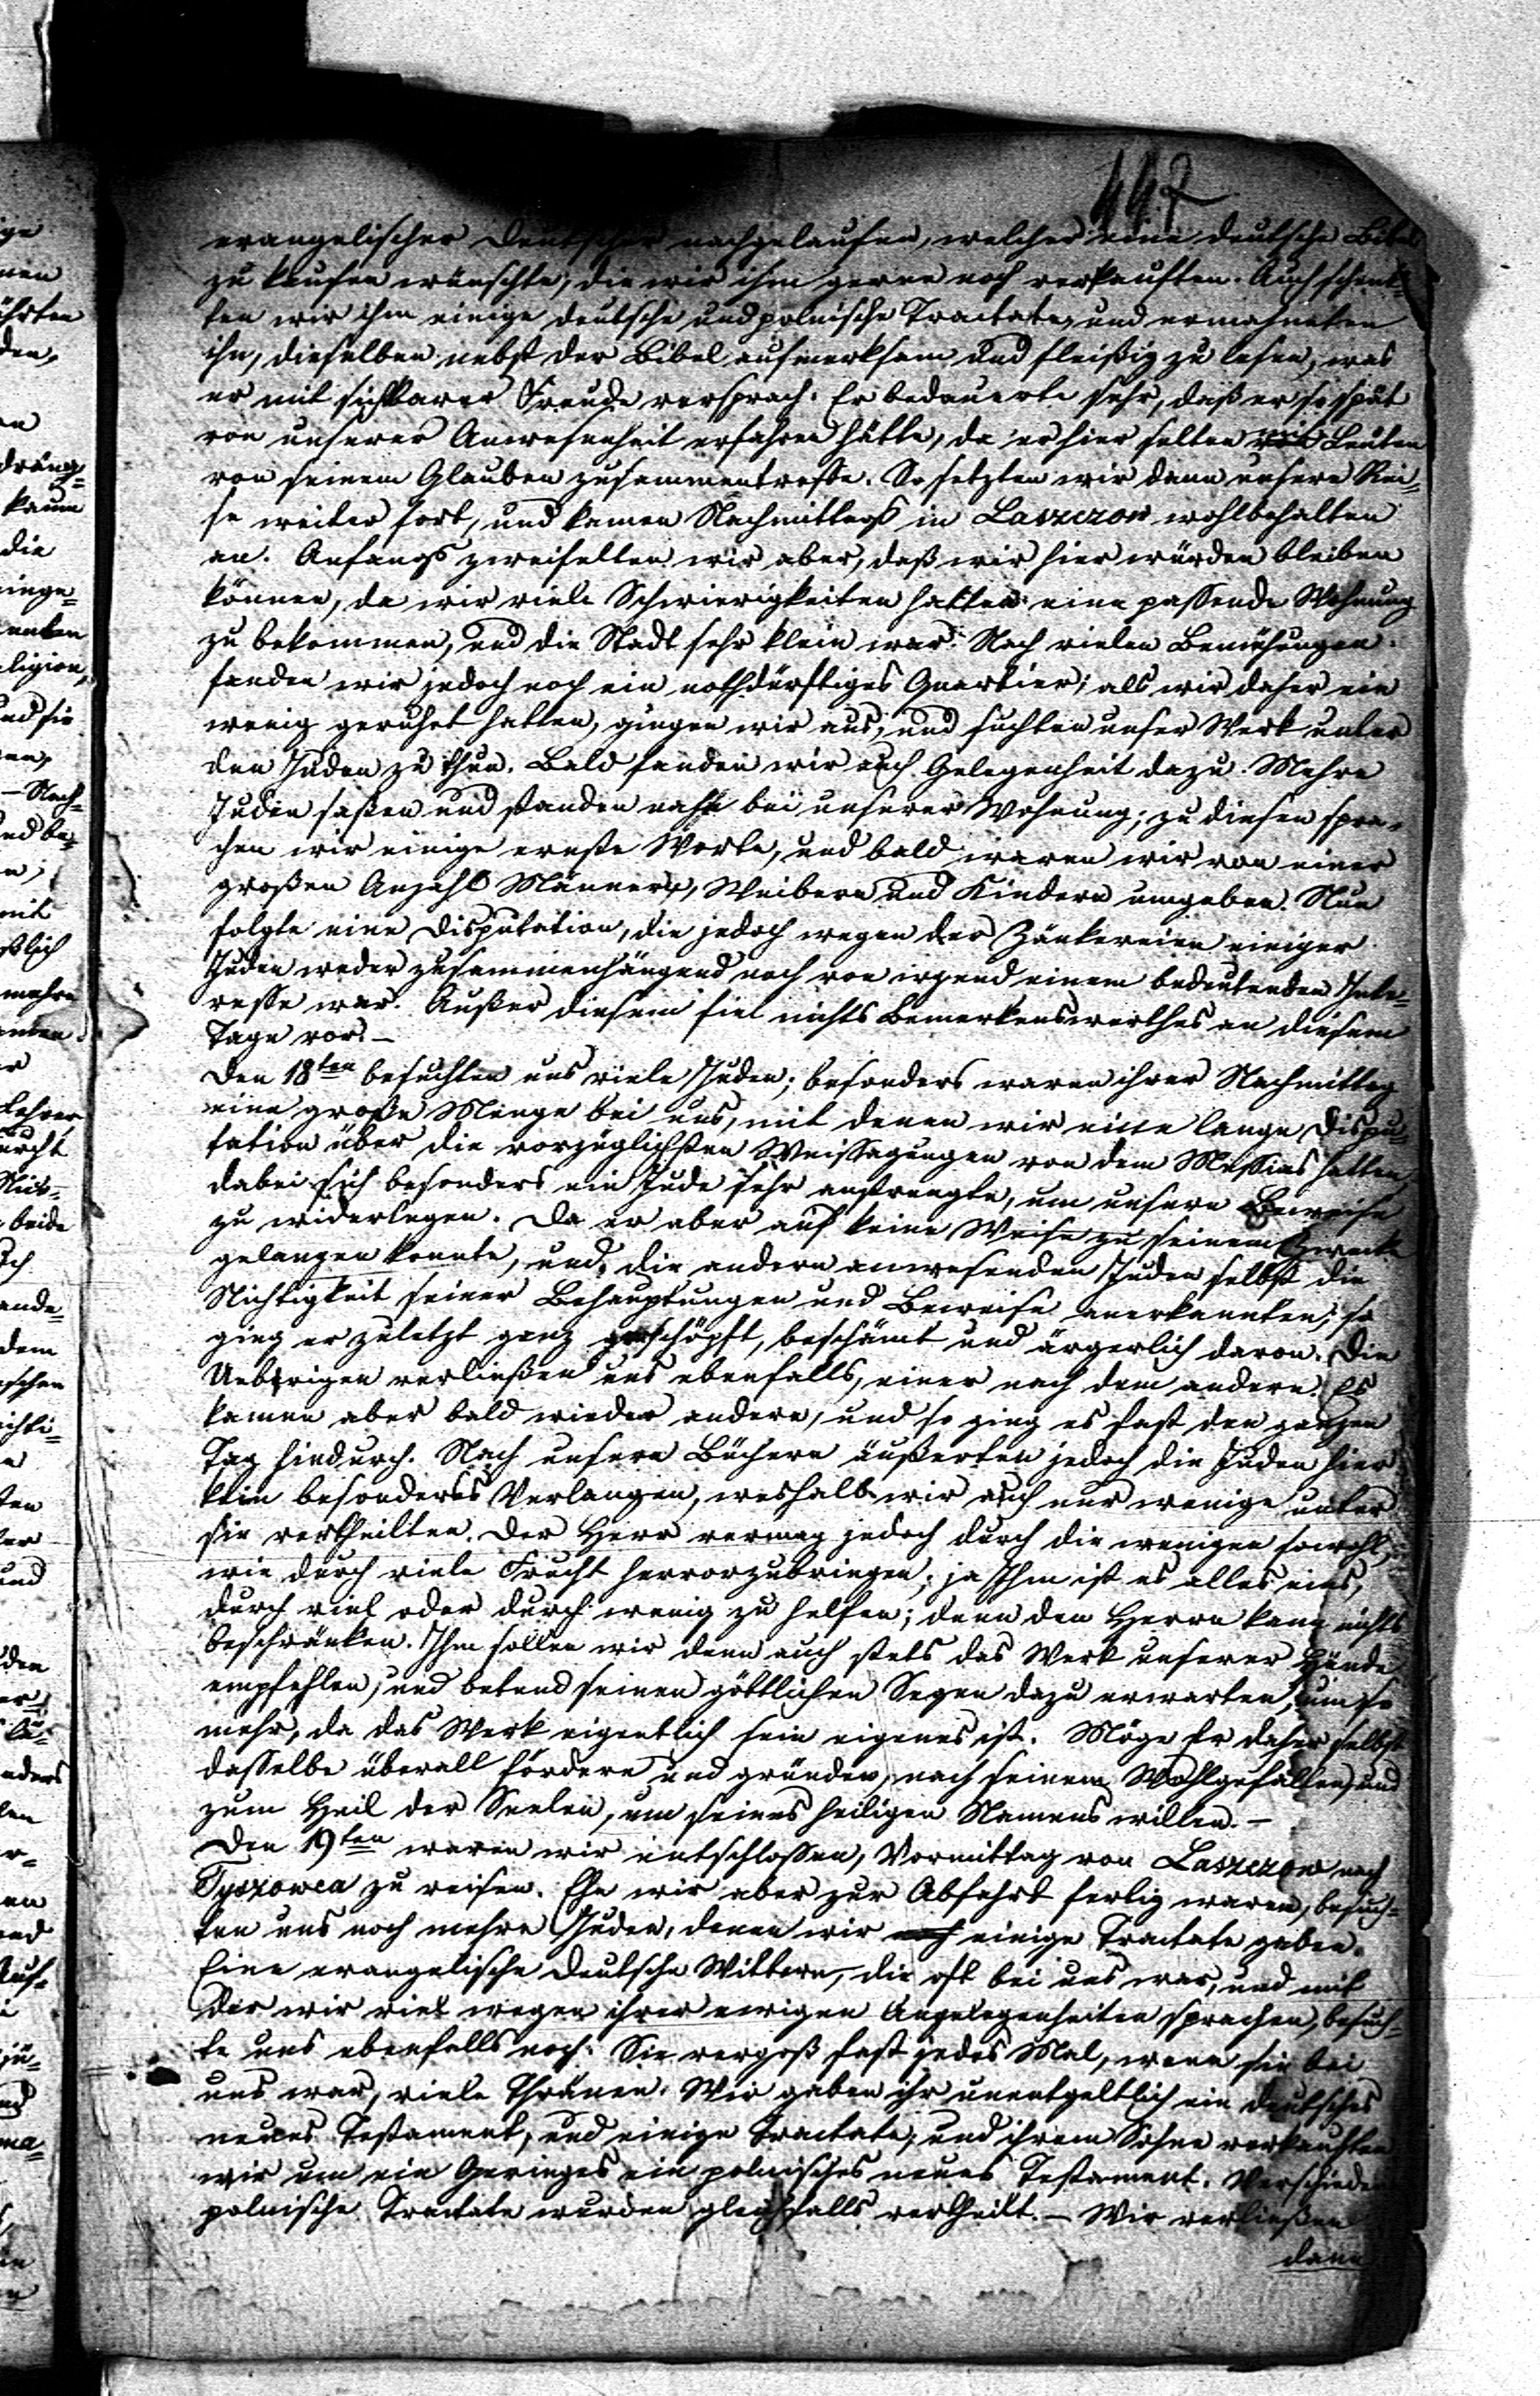 447
evangelischer Deutscher nachgelaufen, welcher eine deutsche Bibel
zu kaufen wünschte, die wir ihm gerne noch verkauften. Auch schenk-
ten wir ihm einige deutsche und polnische Tractate, und ermahneten
ihn, dieselben nebst der Bibel aufmerksam und fleißig zu lesen, was
er mit sichtbarer Freude versprach. Er bedauerte sehr, daß er so spät
von unserer Anwesenheit erfahren hätte, da er hier selten mit Leuten
von seinem Glauben zusammentreffe. So setzten wir dann unsere Rei-
se weiter fort, und kamen Nachmittags in Laszczow wohlbehalten
an. Anfangs zweifelten wir aber, daß wir hier würden bleiben
können, da wir viele Schwierigkeiten hatten eine passende Wohnung
zu bekommen, und die Stadt sehr klein war. Nach vielen Bemühungen
fanden wir jedoch noch ein nothdürftiges Quartier; als wir daher ein
wenig geruhet hatten, gingen wir aus, und suchten unser Werk unter
den Juden zu thun. Bald fanden wir auch Gelegenheit dazu. Mehre
Juden saßen und standen nahe bei unserer Wohnung; zu diesen spra-
chen wir einige ernste Worte, und bald waren wir von einer
großen Anzahl Männern, Weibern und Kindern umgeben. Nun
folgte eine Disputation, die jedoch wegen der Zänkereien einiger
Juden weder zusammenhängend noch von irgend einem bedeutenden Inte-
resse war. Außer diesem fiel nichts Bemerkenswerthes an diesem
Tage vor. –
Den 18ten besuchten uns viele Juden; besonders waren ihrer Nachmittag
eine große Menge bei uns, mit denen wir eine lange Dispu-
tation über die vorzüglichsten Weissagungen von dem Messias hatten,
dabei sich besonders ein Jude sehr anstrengte, um unsere Beweise
zu widerlegen. Da er aber auf keine Weise zu seinem Zwecke
gelangen konnte, und die andern anwesenden Juden selbst die
Nichtigkeit seiner Behauptungen und Beweise anerkannten, so
ging er zuletzt ganz erschöpft, beschämt und ärgerlich davon. Die
Uebrigen verließen uns ebenfalls, einer nach dem andern. Es
kamen aber bald wieder andere, und so ging es fast den ganzen
Tag hindurch. Nach unsern Büchern äußerten jedoch die Juden hier
kein besonderes Verlangen, weshalb wir auch nur wenige unter
sie vertheilten. Der Herr vermag jedoch durch die wenigen sowohl,
wie durch viele Frucht hervorzubringen; ja Ihm ist es alles eins,
durch viel oder durch wenig zu helfen; denn den Herrn kann nichts
beschränken. Ihm sollen wir denn auch stets das Werk unserer Hände
empfehlen, und betend seinen göttlichen Segen dazu erwarten, um so
mehr, da das Werk eigentlich sein eigenes ist. Möge Er daher selbst
dasselbe überall fördern und gründen, nach seinem Wohlgefallen, und
zum Heil der Seelen, um seines heiligen Namens willen. –
Den 19ten waren wir entschlossen, Vormittag von Laszczow nach
Tyszowca zu reisen. Ehe wir aber zur Abfahrt fertig waren, besuch-
ten uns noch mehre Juden, denen wir noch einige Tractate gaben.
Eine evangelische deutsche Wittwe, die oft bei uns war, und mit
der wir viel wegen ihrer ewigen Angelegenheiten sprachen, besuch-
te uns ebenfalls noch. Sie vergoß fast jedes Mal, wenn sie bei
uns war, viele Thränen. Wir gaben ihr unentgeltlich ein deutsches
neues Testament, und einige Tractate; und ihrem Sohne verkauften
wir um ein Geringes ein polnisches neues Testament. Verschiedene
polnische Tractate wurden gleichfalls vertheilt. – Wir verließen
dann